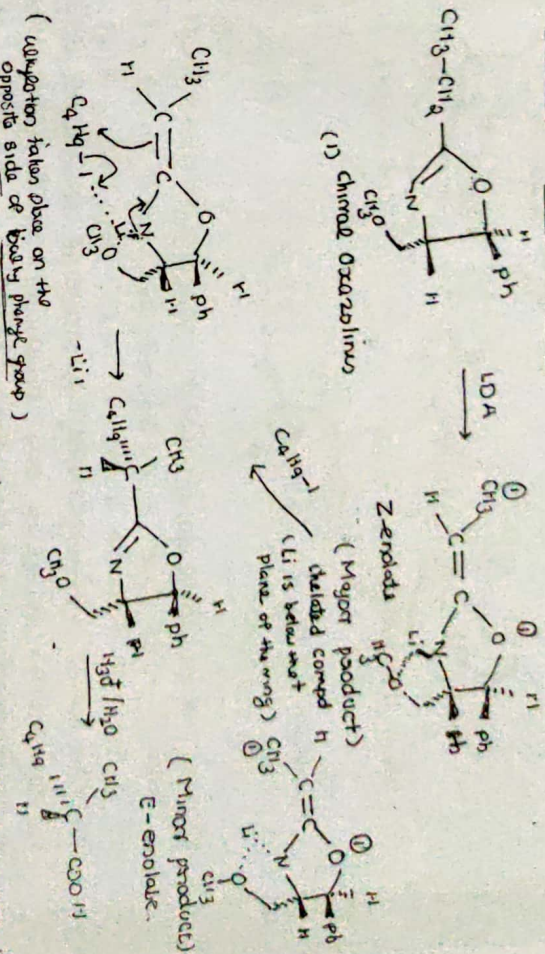 CH3-CH2
O
N
H
Ph
CH3O
H
(1) Chiral Oxazolines
LDA
①
CH3
H
C=C
O
①
N
Li
H3C-O
H
Ph
Ph
Z-enolate
(Major product)
chelated compd
(Li is below that
plane of the ring)
C4H9-I
H
①
CH3
C=C
O
①
N
Li
O
CH3
H
Ph
H
(Minor product)
E-enolate.
CH3
H
C=C
O
N
C4H9-I
Li
O
CH3
H
Ph
H
-LiI
CH3
C4H9
C
H
O
N
CH3O
H
Ph
H3O+/H2O
CH3
C4H9
C-COOH
H
(alkylation takes place on the
opposite side of bulky phenyl group)